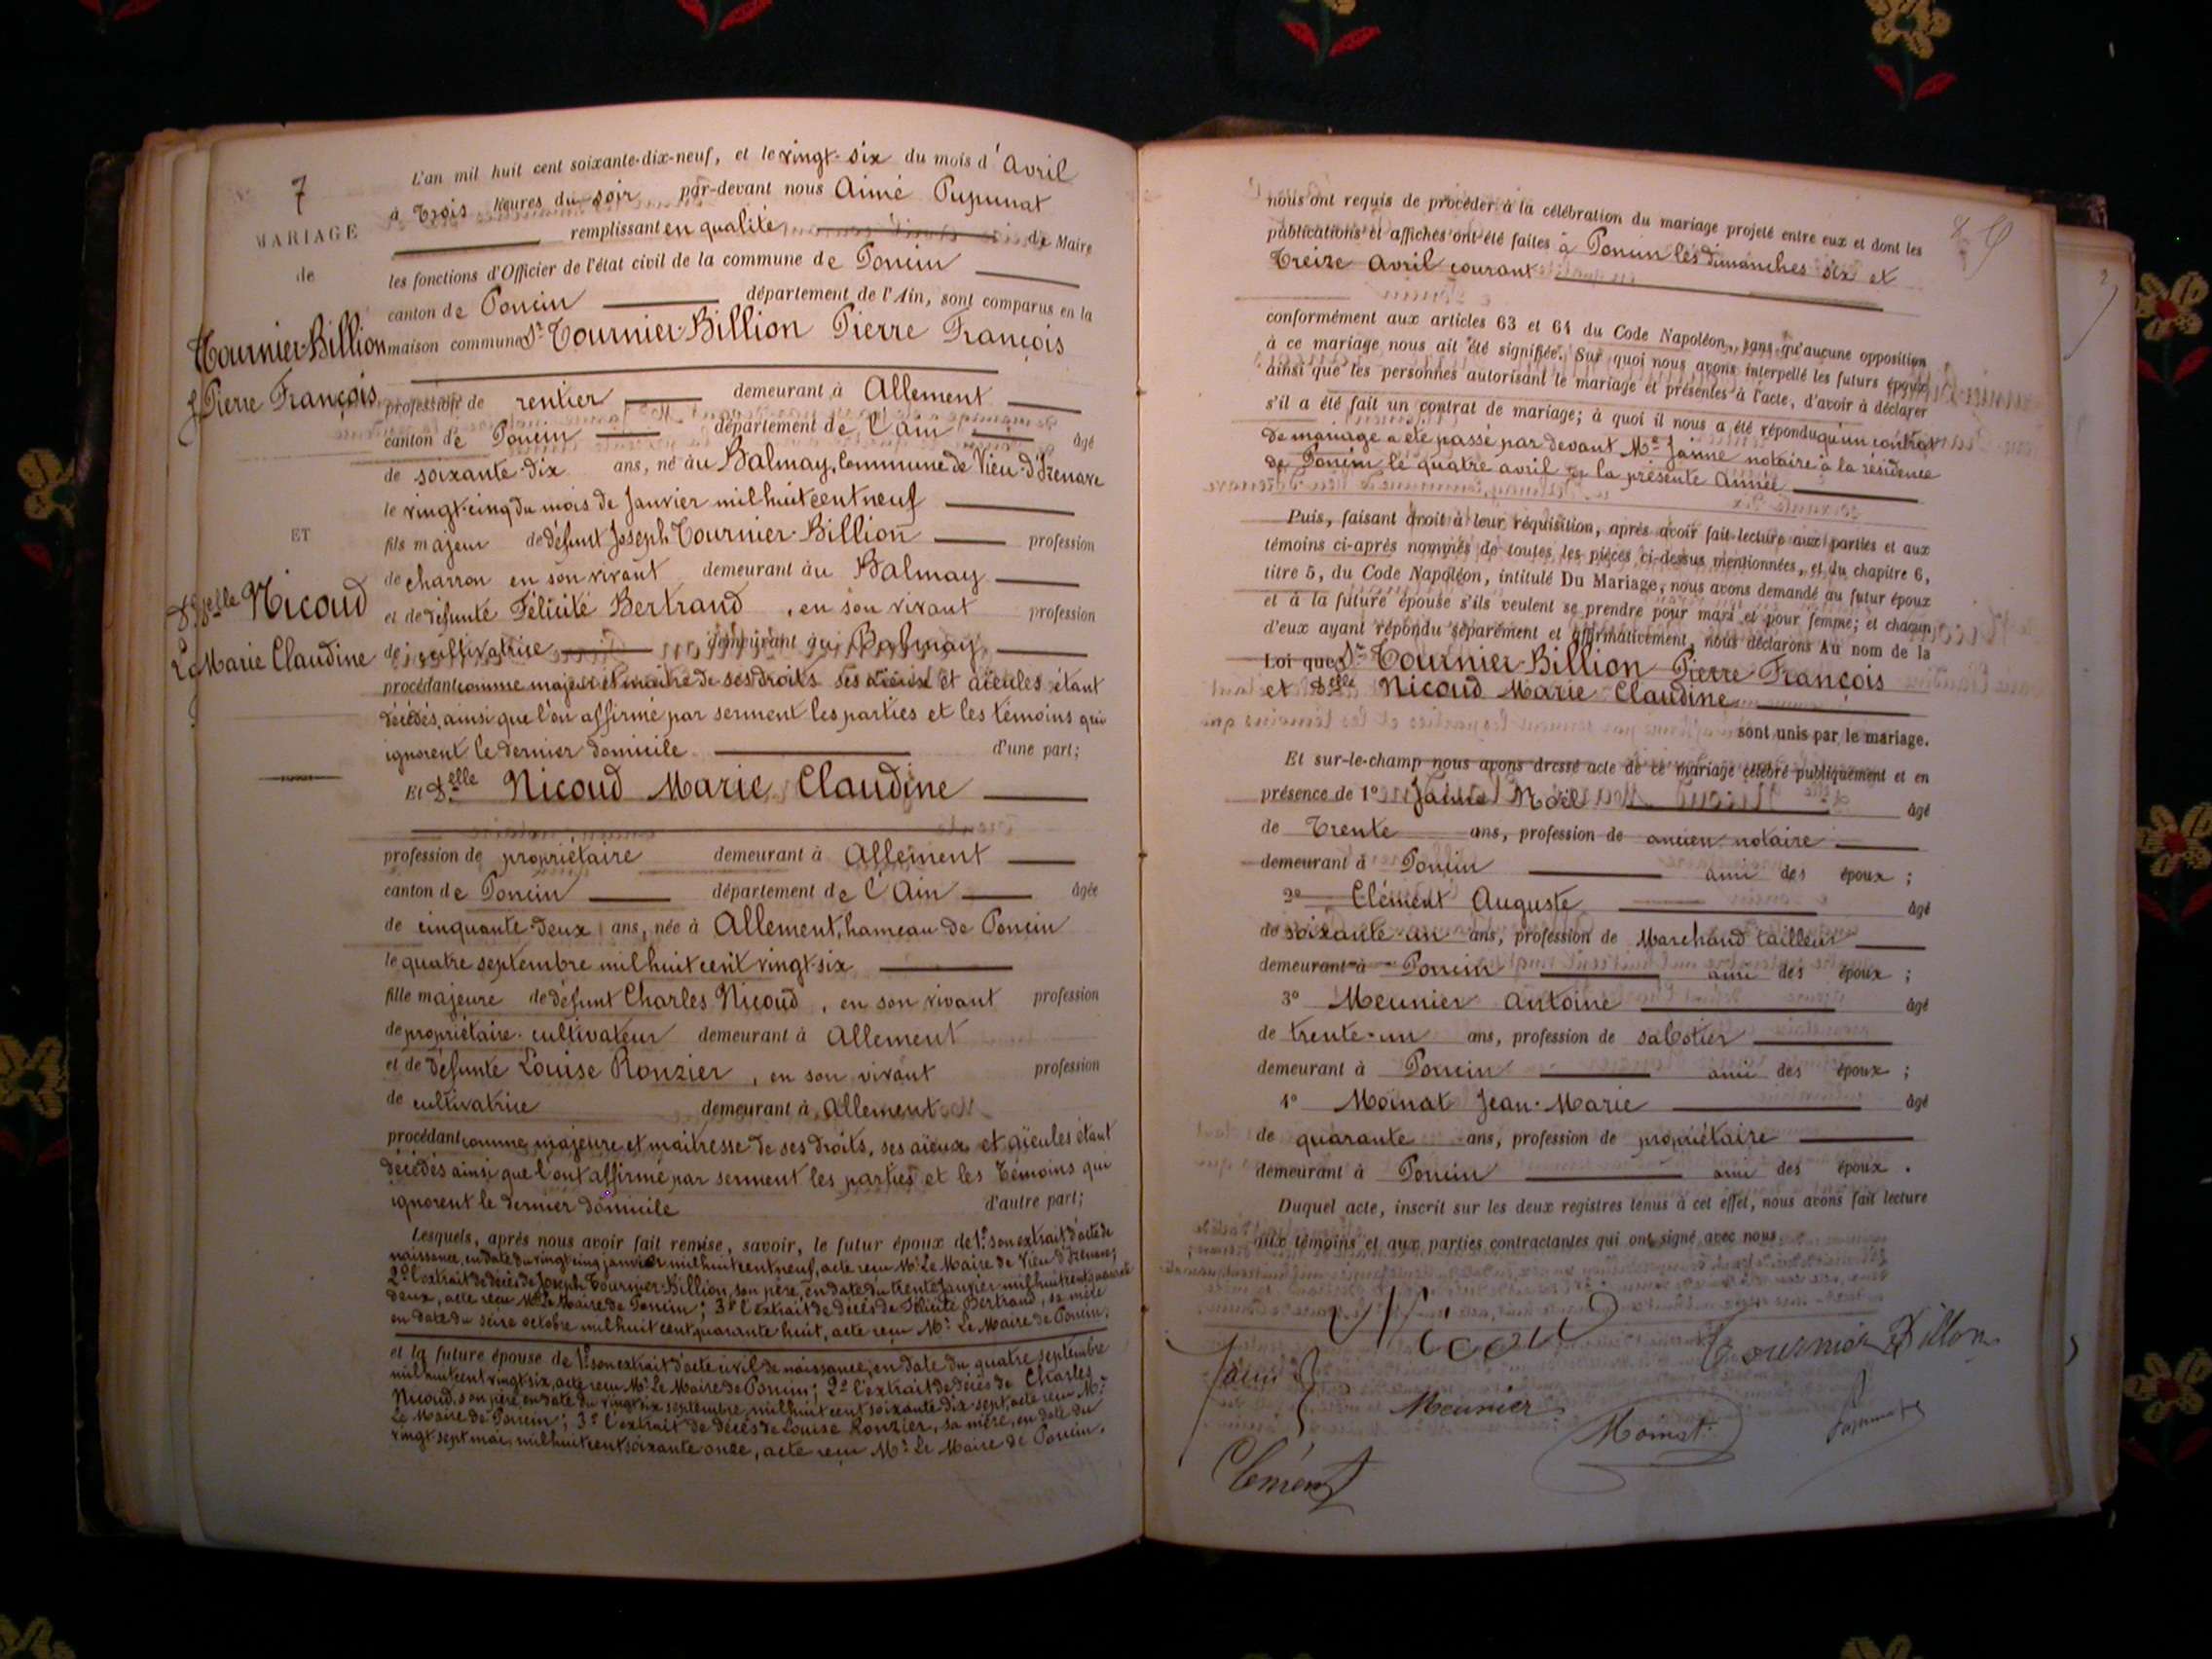 7
MARIAGE
de
Tournier-Billion
Pierre François
ET
D.elle Nicoud
Marie Claudine
L'an mil huit cent soixante-dix-neuf, et le vingt-six du mois d'Avril
à Trois heures du soir par-devant nous Aimé Pupunat
remplissant en qualité de Maire
les fonctions d'Officier de l'état civil de la commune de Poncin
canton de Poncin département de l'Ain, sont comparus en la
maison commune Sr Tournier-Billion Pierre François
profession de rentier demeurant à Allement
canton de Poncin département de l'ain âgé
de soixante-dix ans, né au Balmay, Commune de Vieu-d'Izenave
le vingt-cinq du mois de Janvier mil huit cent neuf
fils majeur de défunt Joseph Tournier-Billion profession
de charron en son vivant demeurant au Balmay
et de défunte Félicité Bertrand, en son vivant profession
de cultivatrice demeurant au Balmay
procédant comme majeur et maître de ses droits ses aïeux et aïeules étant
décédés, ainsi que l'on affirmé par serment les parties et les témoins qui
ignorent le dernier domicile d'une part;
Et D.elle Nicoud Marie Claudine
profession de propriétaire demeurant à Allement
canton de Poncin département de l'Ain âgée
de cinquante-deux ans, née à Allement, hameau de Poncin
le quatre septembre mil huit cent vingt-six
fille majeure de défunt Charles Nicoud, en son vivant profession
de propriétaire-cultivateur demeurant à Allement
et de défunte Louise Ronzier, en son vivant profession
de cultivatrice demeurant à Allement
procédant comme majeure et maîtresse de ses droits, ses aïeux et aïeules étant
décédés ainsi que l'ont affirmé par serment les parties et les Témoins qui
ignorent le dernier domicile d'autre part;
Lesquels, après nous avoir fait remise, savoir, le futur époux de 1º son extrait d'acte de
naissance, en date du vingt cinq janvier mil huit cent neuf, acte reçu Mr Le Maire de Vieu d'Izenave;
2º l'extrait de décès de Joseph Tournier-Billion, son père, en date du trente Janvier mil huit cent quarante
deux, acte reçu Mr Le Maire de Poncin; 3º l'extrait de décès de Félicité Bertrand, sa mère
en date du seize octobre mil huit cent quarante huit, acte reçu Mr Le Maire de Poncin.
et la future épouse de 1º son extrait d'acte civil de naissance, en date du quatre septembre
mil huit cent vingt six, acte reçu Mr Le Maire de Poncin; 2º l'extrait de décès de Charles
Nicoud, son père, en date du vingt six septembre, mil huit cent soixante dix-sept, acte reçu Mr
Le Maire de Poncin; 3º l'extrait de décès de Louise Ronzier, sa mère, en date du
vingt sept mai, mil huit cent soixante onze, acte reçu Mr Le Maire de Poncin.
nous ont requis de procéder à la célébration du mariage projeté entre eux et dont les
publications et affiches ont été faites à Poncin les dimanches six et
Treize Avril courant
conformément aux articles 63 et 64 du Code Napoléon, sans qu'aucune opposition
à ce mariage nous ait été signifiée. Sur quoi nous avons interpellé les futurs époux
ainsi que les personnes autorisant le mariage et présentes à l'acte, d'avoir à déclarer
s'il a été fait un contrat de mariage; à quoi il nous a été répondu qu'un contrat
de mariage a été passé par devant Me Janne notaire à la résidence
de Poncin le quatre avril la présente Année
Puis, faisant droit à leur réquisition, après avoir fait lecture aux parties et aux
témoins ci-après nommés de toutes les pièces ci-dessus mentionnées, et du chapitre 6,
titre 5, du Code Napoléon, intitulé Du Mariage, nous avons demandé au futur époux
et à la future épouse s'ils veulent se prendre pour mari et pour femme; et chacun
d'eux ayant répondu séparément et affirmativement, nous déclarons Au nom de la
Loi que Sr Tournier-Billion Pierre François
et D.elle Nicoud Marie Claudine
sont unis par le mariage.
Et sur-le-champ nous avons dressé acte de ce mariage célébré publiquement et en
présence de 1º Janne Noël âgé
de Trente ans, profession de ancien notaire
demeurant à Poncin ami des époux;
2º Clément Auguste âgé
de soixante-un ans, profession de Marchand tailleur
demeurant à Poncin ami des époux;
3º Meunier Antoine âgé
de trente-un ans, profession de sabotier
demeurant à Poncin ami des époux;
4º Moinat Jean-Marie âgé
de quarante ans, profession de propriétaire
demeurant à Poncin ami des époux.
Duquel acte, inscrit sur les deux registres tenus à cet effet, nous avons fait lecture
aux témoins et aux parties contractantes qui ont signé avec nous
Nicoud
Tournier Billon
Janne
Meunier
Moinat
Clément